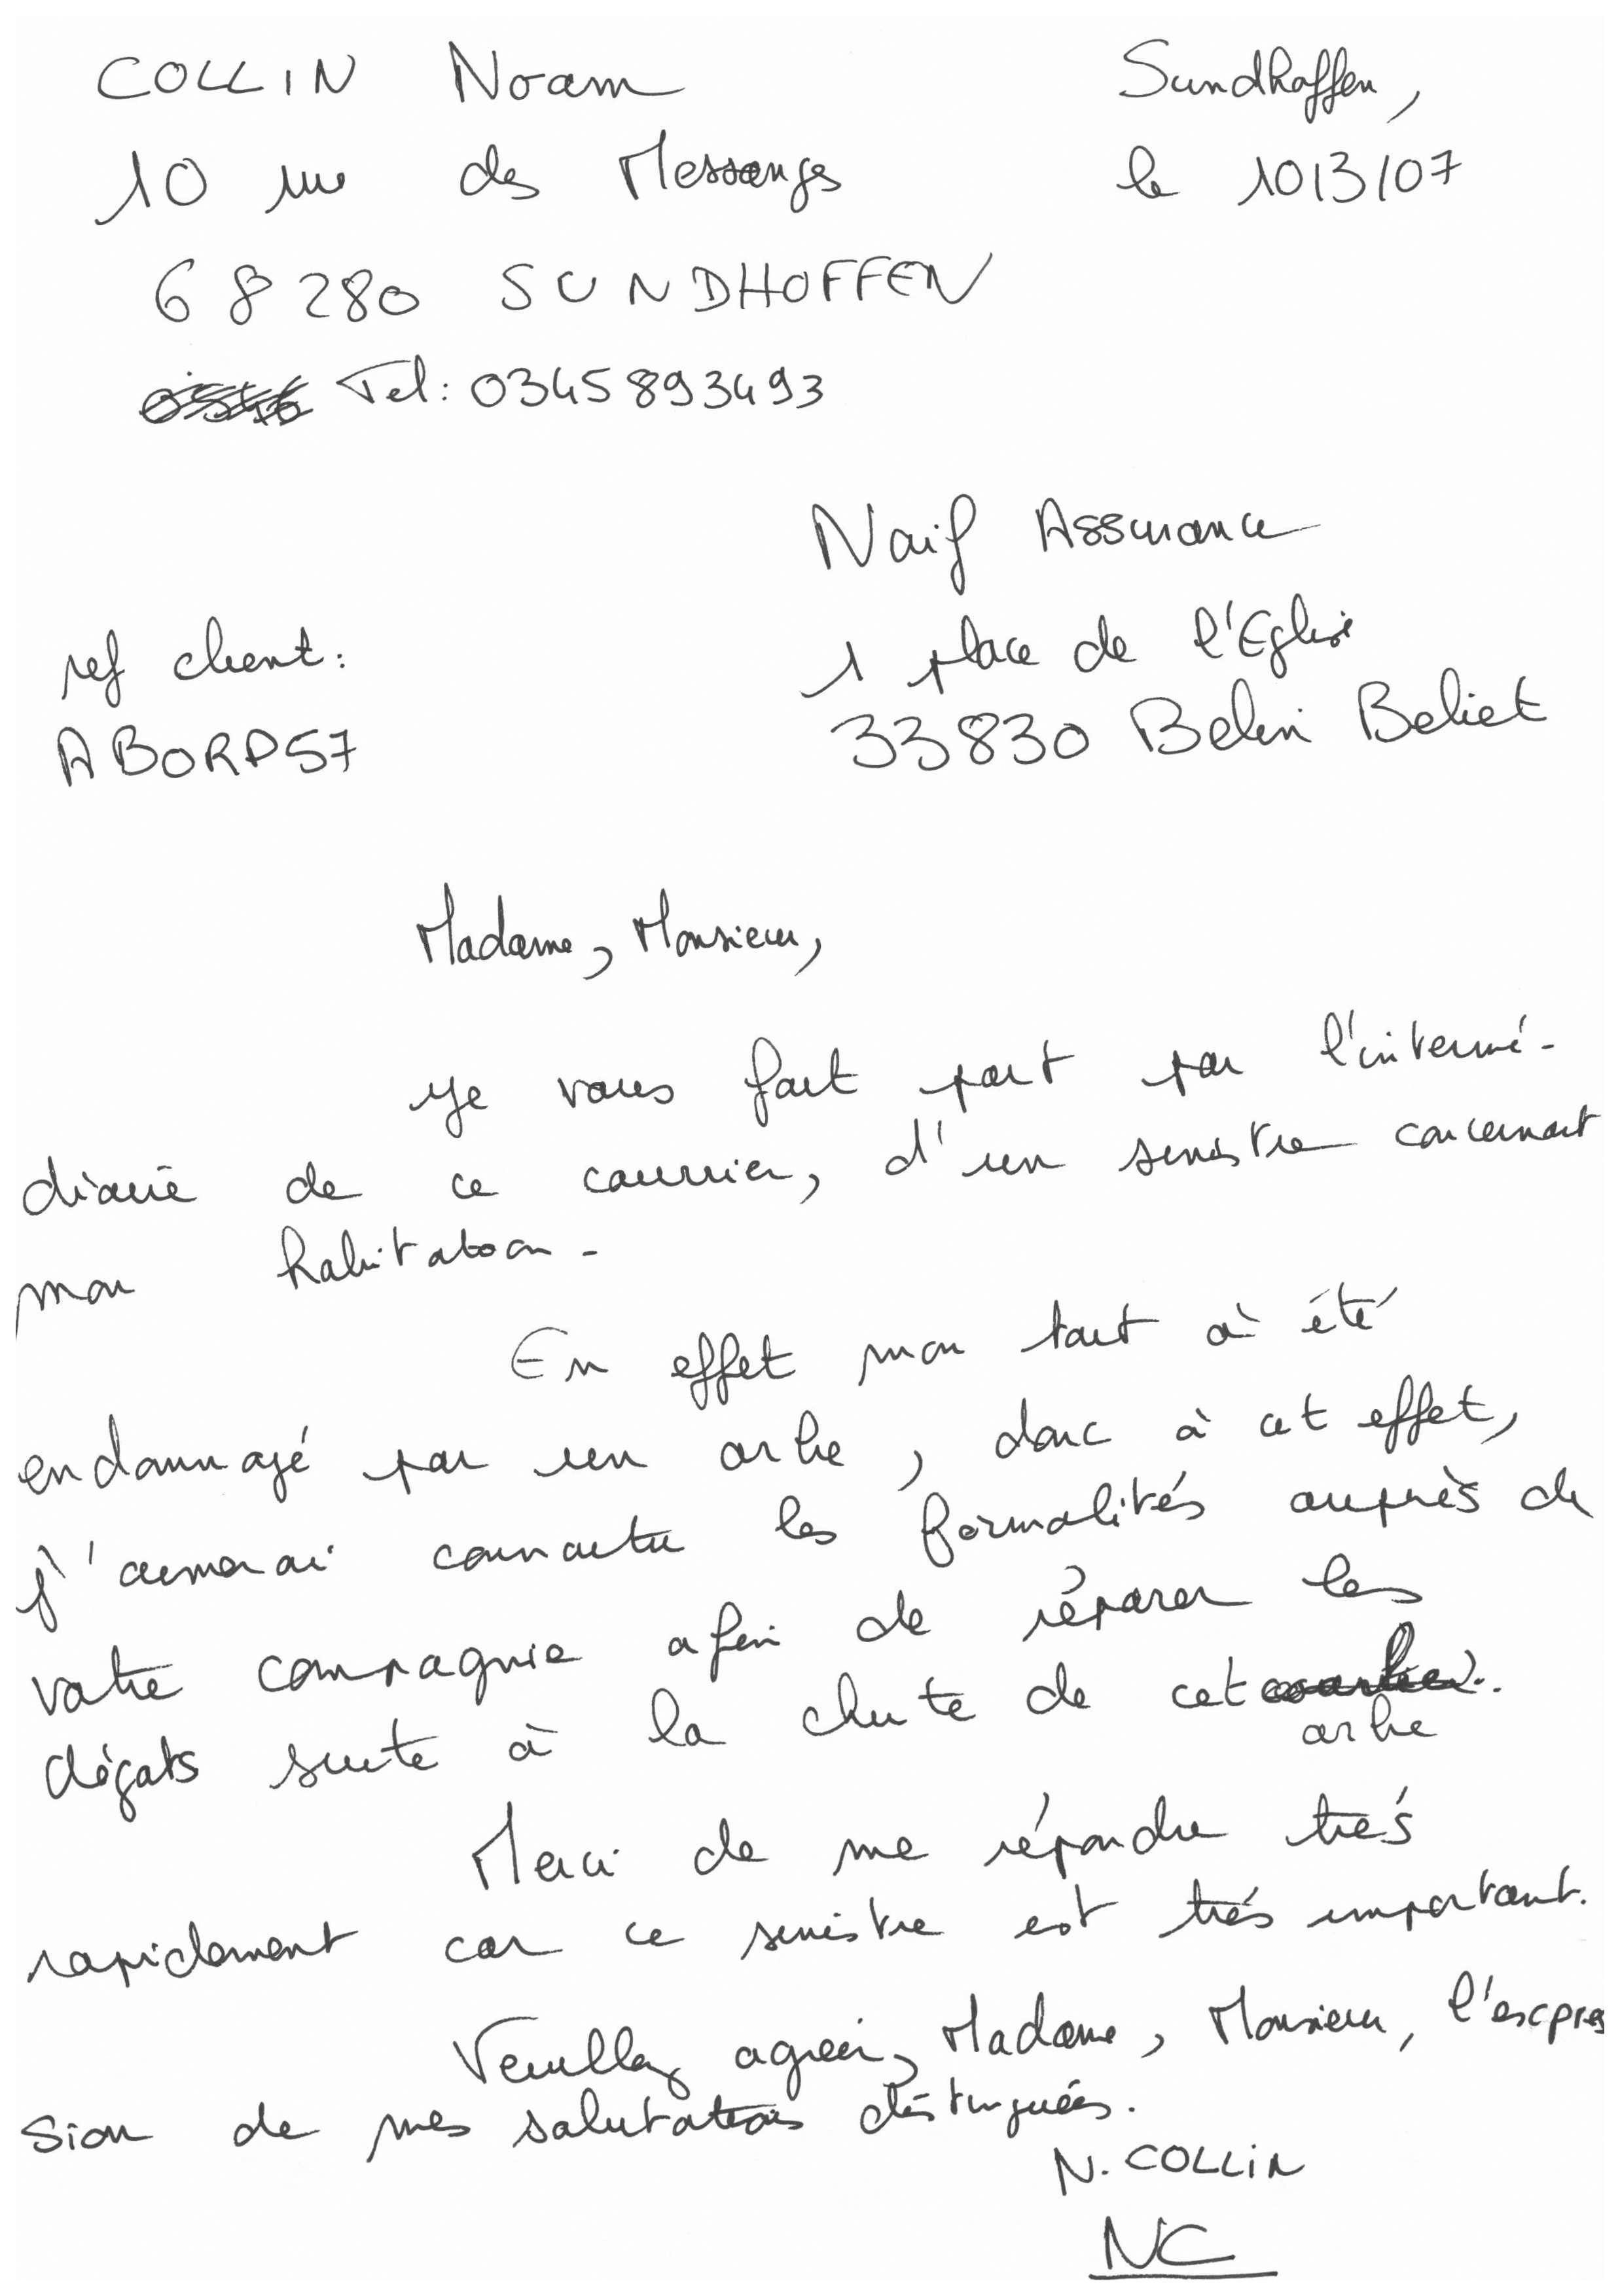 COLLIN Noam
10 rue des Messanges
68280 SUNDHOFFEN
Tel: 0345893493
Sundhoffen,
le 10/3/07
Naif Assurance
1 place de l'Eglise
33830 Belin Beliet
ref client:
ABORD57
Madame, Monsieur,
Je vous fait part par l'intermé-
diaire de ce courrier, d'un sinistre concernant
mon habitation.
En effet mon toit à été
endommagé par un arbre, donc à cet effet,
j'aimerai connaitre les formalités auprès de
votre compagnie afin de réparer les
dégats suite à la chute de cet
arbre
Merci de me répondre trés
rapidement car ce sinistre est trés important.
Veuillez agréer, Madame, Monsieur, l'expres
sion de mes salutations distinguées.
N. COLLIN
NC